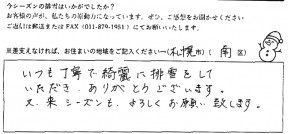 今シーズンの排雪はいかがでしたか？
お客様の声が、私たちの原動力になっています。ぜひ、ご感想をお聞かせください
ご返信は郵送またはFAX（011-879-1951）にてお願いいたします。
※差支えなければ、お住まいの地域をご記入ください→（札幌市）（南区）
いつも丁寧で綺麗に排雪をして
いただき、ありがとうございます。
又、来シーズンも、よろしくお願い致します。